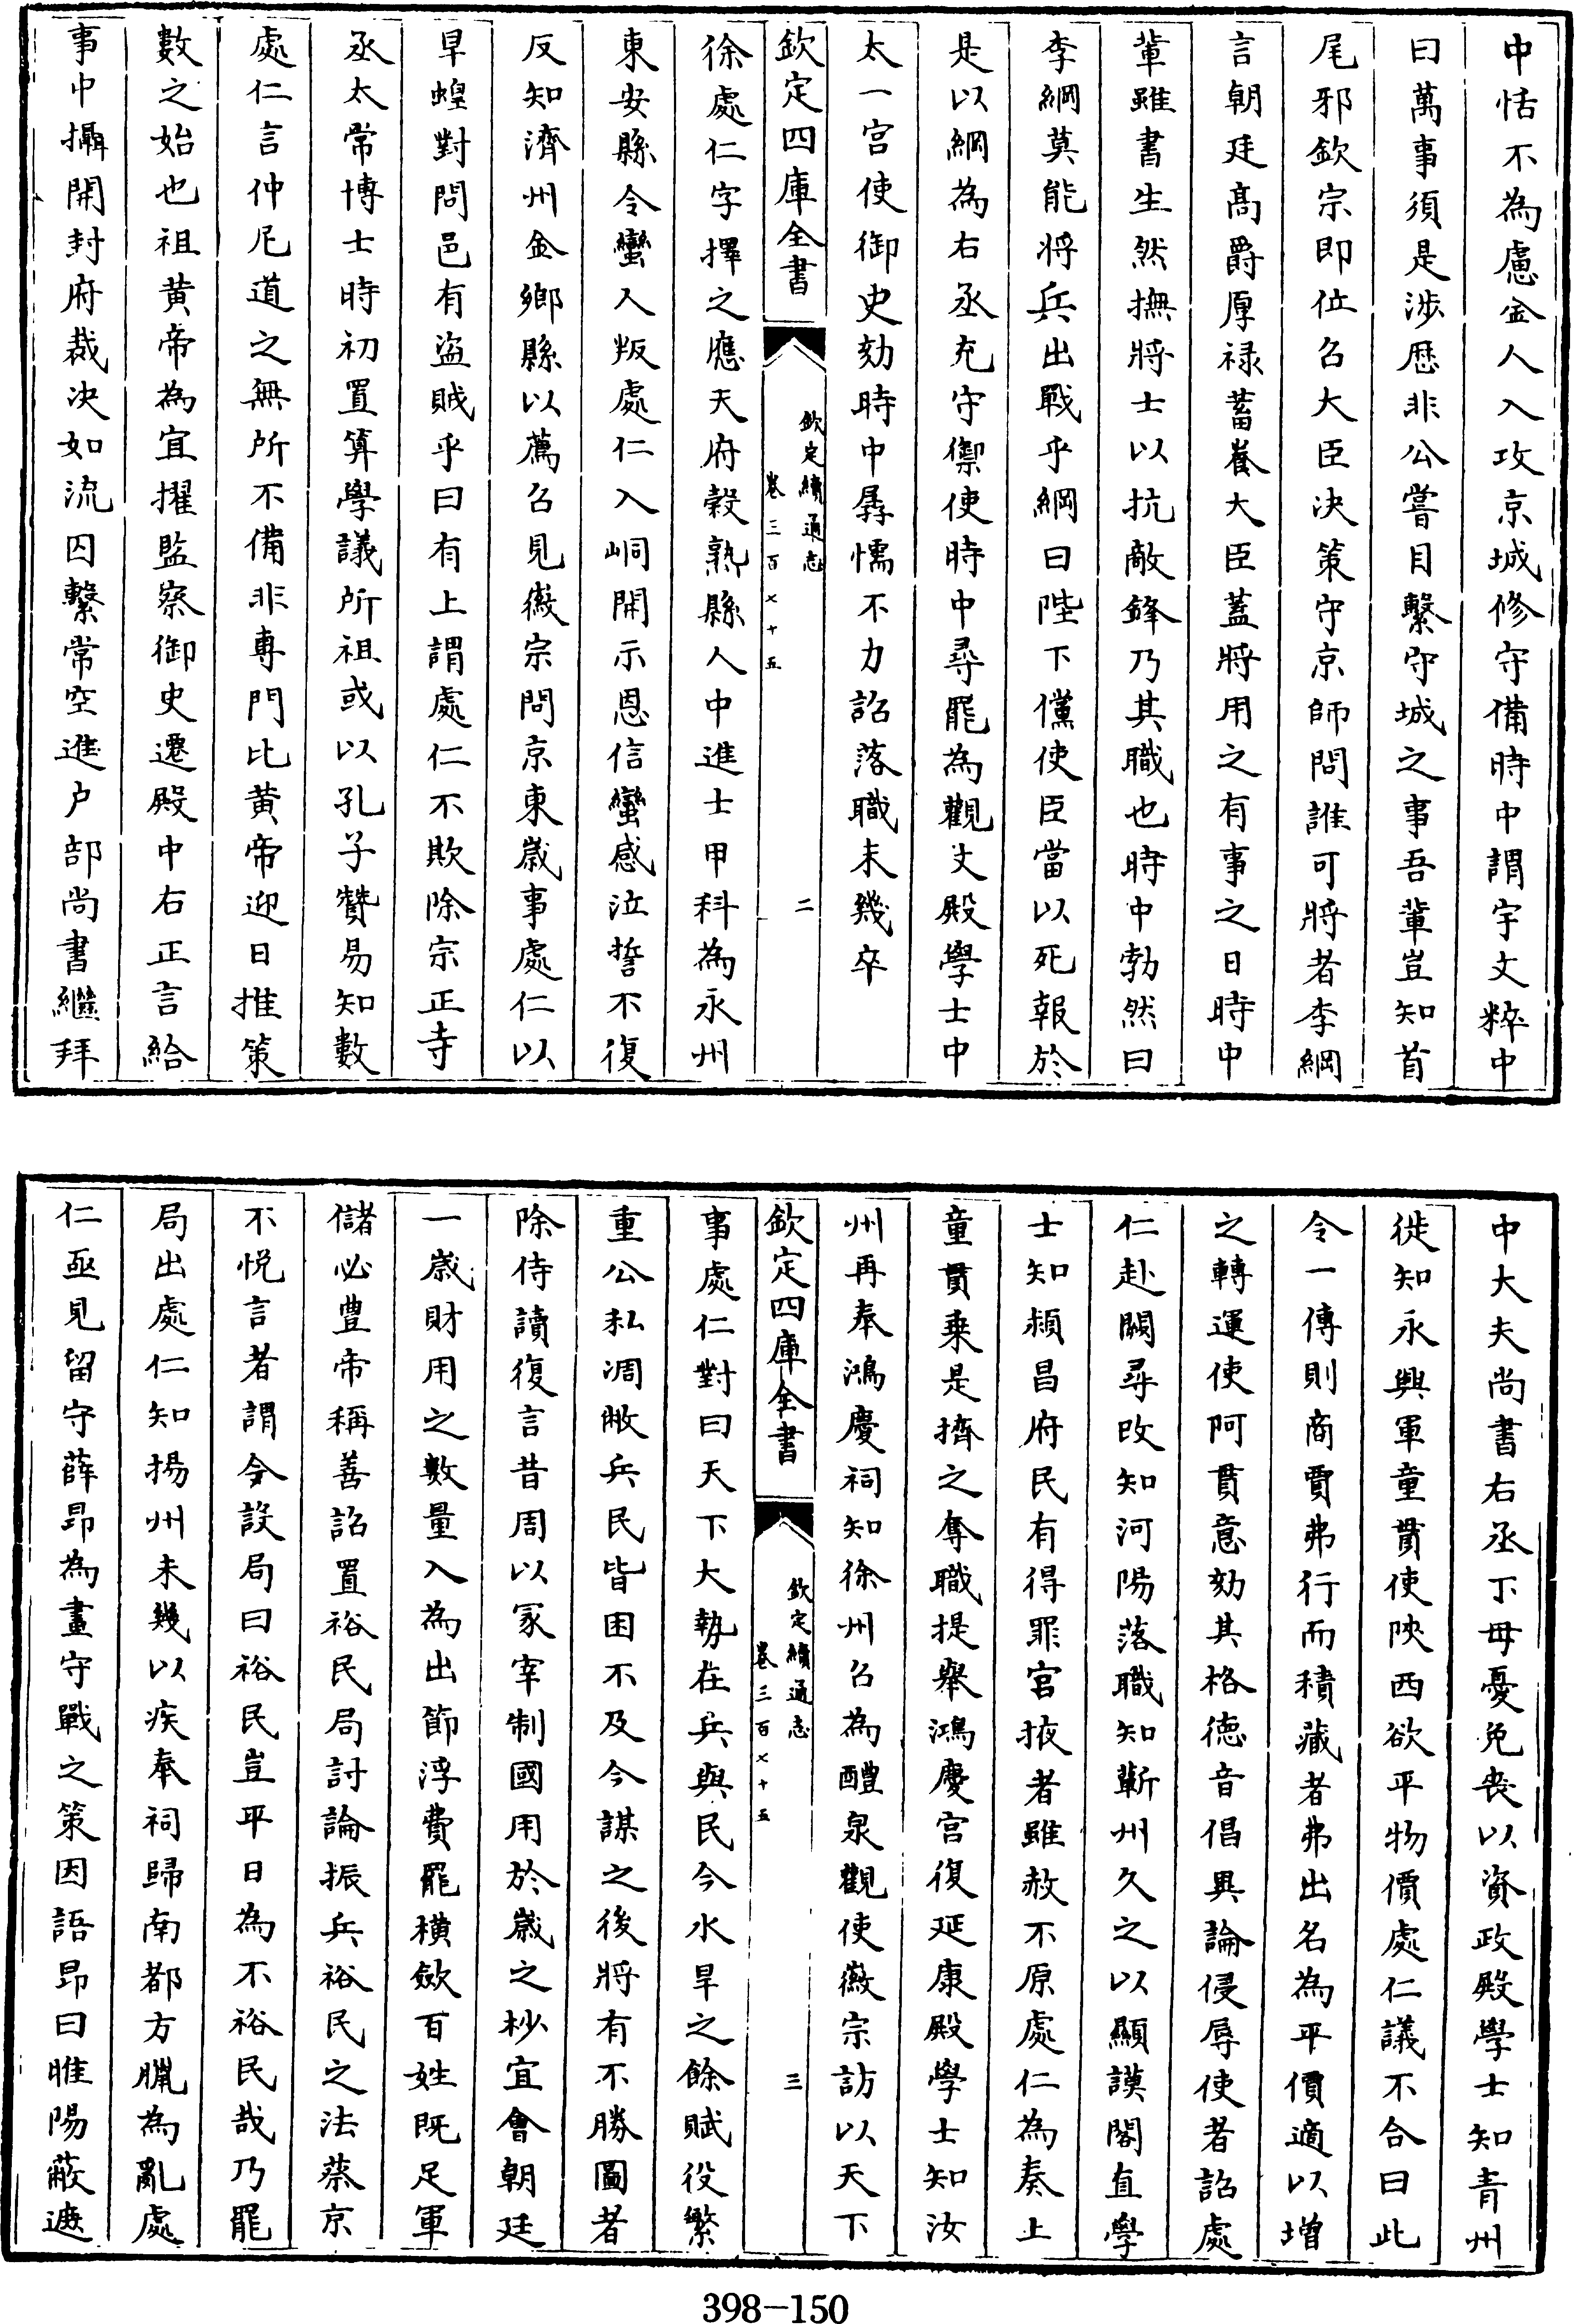 中恬不為慮金人入攻京城修守備時中謂宇文粹中
曰萬事須是涉歴非公嘗目繫守城之事吾輩豈知首
尾邪欽宗即位召大臣決策守京師問誰可將者李綱
言朝廷髙爵厚禄蓄養大臣蓋將用之有事之日時中
輩雖書生然撫將士以抗敵鋒乃其職也時中勃然曰
李綱莫能將兵出戰乎綱曰陛下儻使臣當以死報於
是以綱為右丞充守禦使時中尋罷為觀文殿學士中
太一宫使御史劾時中孱懦不力詔落職未幾卒
欽定四庫全書
欽定續通志
卷三百七十五
二
徐處仁字擇之應天府榖熟縣人中進士甲科為永州
東安縣令蠻人叛處仁入峒開示恩信蠻感泣誓不復
反知濟州金鄉縣以薦召見徽宗問京東歳事處仁以
旱蝗對問邑有盜賊乎曰有上謂處仁不欺除宗正寺
丞太常博士時初置算學議所祖或以孔子贊易知數
處仁言仲尼道之無所不備非専門比黄帝迎日推策
數之始也祖黄帝為宜擢監察御史遷殿中右正言給
事中攝開封府裁决如流囚繫常空進户部尚書繼拜
中大夫尚書右丞丁母憂免喪以資政殿學士知青州
徙知永興軍童貫使陜西欲平物價處仁議不合曰此
令一傳則商賈弗行而積藏者弗出名為平價適以增
之轉運使阿貫意劾其格徳音倡異論侵辱使者詔處
仁赴闕尋改知河陽落職知蘄州久之以顯謨閣直學
士知潁昌府民有得罪宫掖者雖赦不原處仁為奏上
童貫乗是擠之奪職提舉鴻慶宫復延康殿學士知汝
州再奉鴻慶祠知徐州召為醴泉觀使徽宗訪以天下
欽定四庫全書
欽定續通志
卷三百七十五
三
事處仁對曰天下大勢在兵與民今水旱之餘賦役繁
重公私凋敝兵民皆困不及今謀之後將有不勝圖者
除侍讀復言昔周以冡宰制國用於歳之杪宜㑹朝廷
一歳財用之數量入為出節浮費罷横斂百姓既足軍
儲必豊帝稱善詔置裕民局討論振兵裕民之法蔡京
不悦言者謂今設局曰裕民豈平日為不裕民哉乃罷
局出處仁知揚州未幾以疾奉祠歸南都方臘為亂處
仁亟見留守薛昂為畫守戰之策因語昂曰睢陽蔽遮
398-150